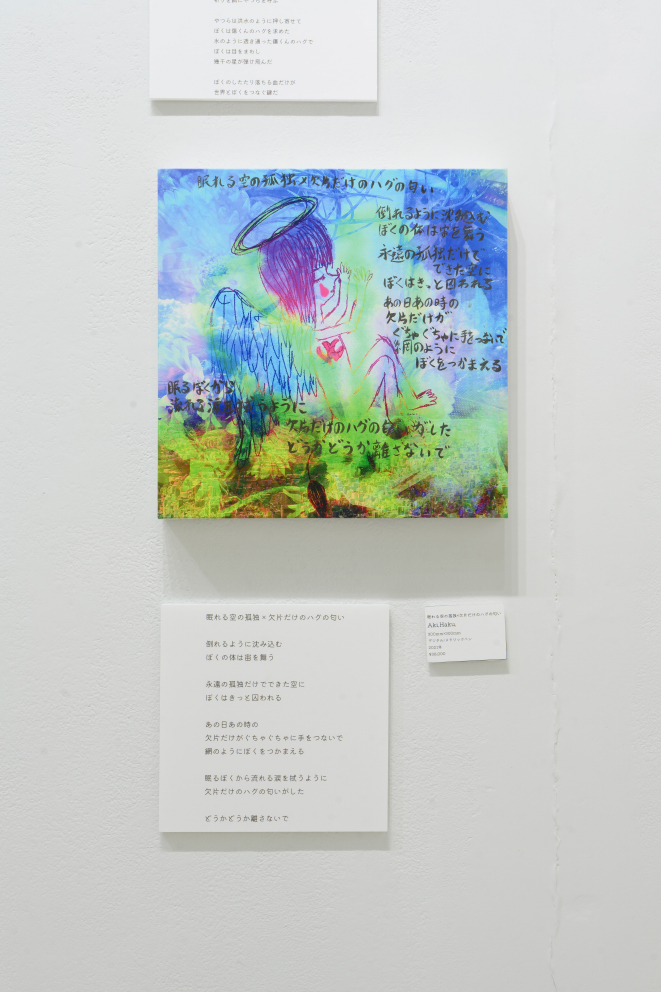 やつらは洪水のように押し寄せて
ぼくは傷くんのハグを求めた
氷のように透き通った傷くんのハグで
ぼくは目をまわし
幾千の星が弾け飛んだ
ぼくのしたたり落ちる血だけが
世界とぼくをつなぐ鍵だ
眠れる空の孤独×欠片だけのハグの匂い
倒れるように沈み込む
ぼくの体は宙を舞う
永遠の孤独だけで
できた空に
ぼくはきっと囚われる
あの日あの時の
欠片だけが
ぐちゃぐちゃに手をつないで
網のように
ぼくをつかまえる
眠るぼくから
流れる涙を拭うように
欠片だけのハグの匂いがした
どうかどうか離さないで
眠れる空の孤独×欠片だけのハグの匂い
倒れるように沈み込む
ぼくの体は宙を舞う
永遠の孤独だけでできた空に
ぼくはきっと囚われる
あの日あの時の
欠片だけがぐちゃぐちゃに手をつないで
網のようにぼくをつかまえる
眠るぼくから流れる涙を拭うように
欠片だけのハグの匂いがした
どうかどうか離さないで
眠れる空の孤独×欠片だけのハグの匂い
Aki.Haku.